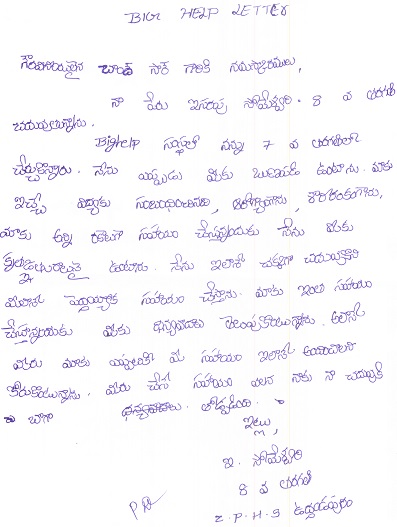 BIG HELP LETTER
గౌరవనీయులైన చాంద్ సార్ గారికి నమస్కారములు,
నా పేరు ఇసరపు సోమేశ్వరి. 8 వ తరగతి
చదువుతున్నాను.
Bighelp సంస్థలో నన్ను 7 వ తరగతిలో
చేర్చుకొన్నారు. నేను ఎప్పుడు మీకు ఋణపడి ఉంటాను. మాకు
ఇచ్చే విద్యకు సంబంధించినది, ఆరోగ్యపరంగాను,
మాకు అన్ని రకాలుగా సహాయం చేస్తున్నందుకు నేను మీకు
కృతజ్ఞతలు ఉంటాను. నేను ఇలాగే చక్కగా చదువుకొని
మీలాగే పెద్దయ్యాక సహాయం చేస్తాను. మాకు ఇంత సహాయం
చేస్తున్నందుకు మీకు ధన్యవాదాలు తెలుపుకొంటున్నాను. అలాగే
మీరు మాకు ఎప్పటికి మీ సహాయం ఇలాగే అందించాలని
కోరుకొంటున్నాను. మీరు చేసే సహాయం వలన నాకు నా చదువుకి
బాగా ధన్యవాదాలు. తోడ్పడింది.
ఇట్లు,
ఇ. సోమేశ్వరి
8 వ తరగతి
Z.P.H.S ఉద్దండపురం